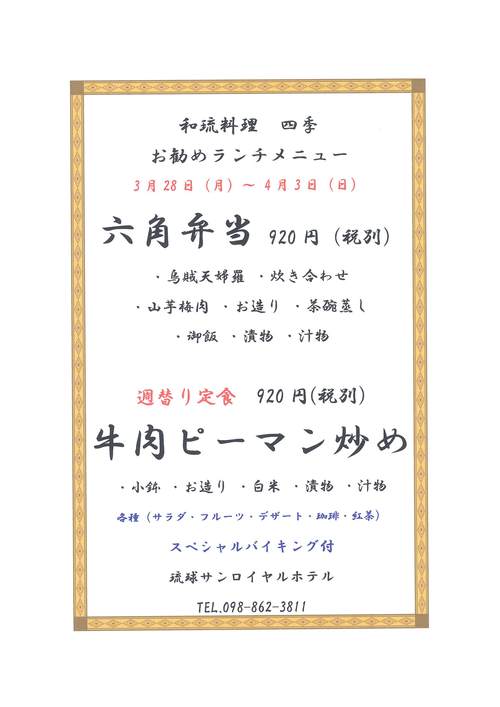 和琉料理　四季
お勧めランチメニュー
3月28日（月）～ 4月3日（日）
六角弁当 920円（税別）
・烏賊天婦羅 ・炊き合わせ
・山芋梅肉 ・お造り ・茶碗蒸し
・御飯 ・漬物 ・汁物
週替り定食　920円(税別)
牛肉ピーマン炒め
・小鉢 ・お造り ・白米 ・漬物 ・汁物
各種（サラダ・フルーツ・デザート・珈琲・紅茶）
スペシャルバイキング付
琉球サンロイヤルホテル
TEL.098-862-3811